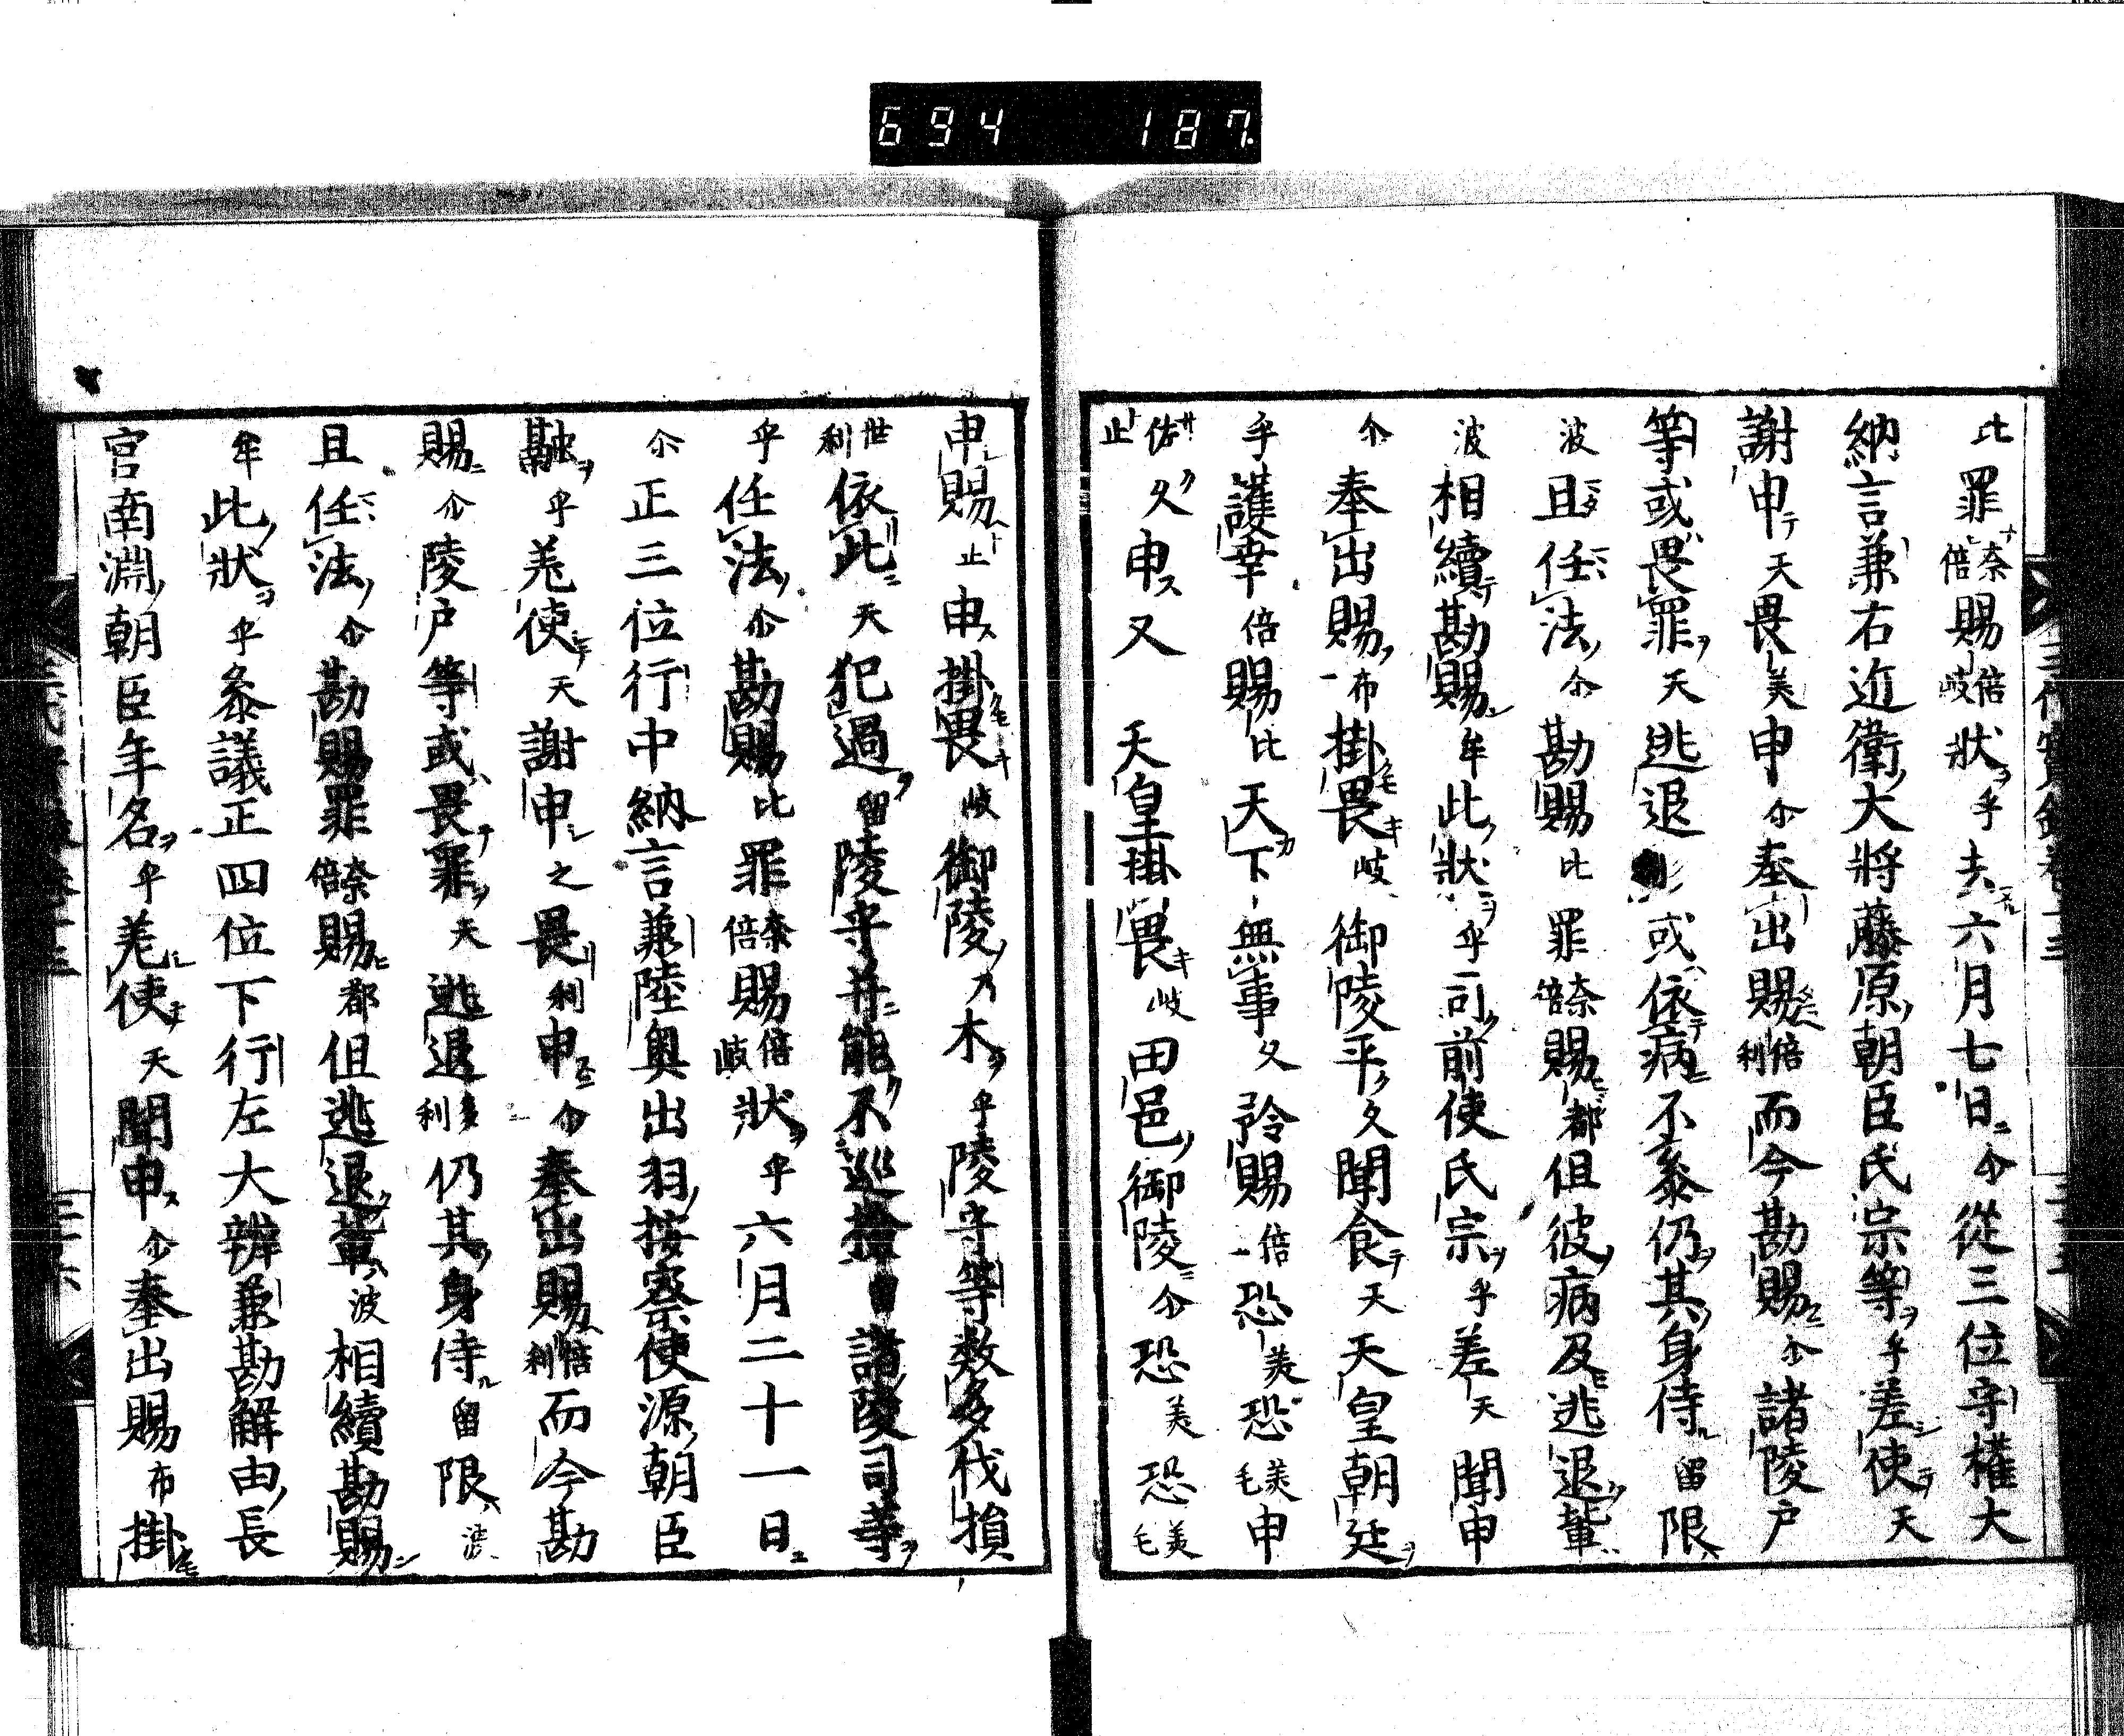 694 187
比罪奈倍賜倍岐狀乎去六月七日尒從三位守權大
納言兼右近衛大將藤原朝臣氏宗等乎差使天
謝申天畏美申尒奉出賜倍利而今勘賜尒諸陵戶
等或畏罪天逃退或依病不參仍其身侍留限
波且任法尒勘賜比罪奈倍賜都但彼病及逃退輩
波相續勘賜牟此狀乎司前使氏宗乎差天聞申
尒奉出賜布掛畏岐御陵平久聞食天天皇朝廷
乎護幸倍賜比天下無事久矜賜倍恐美恐美毛申
佐止久申又 天皇掛畏岐田邑御陵尒恐美恐美毛
申賜止申掛畏岐御陵乃木乎陵守等數多伐損
世利依此天犯過留陵守并能不巡撿留諸陵司等
乎任法尒勘賜比罪奈倍賜倍岐狀乎六月二十一日
尒正三位行中納言兼陸奧出羽按察使源朝臣
融乎羌使天謝申之畏利申尒奉出賜倍利而今勘
賜尒陵戶等或畏罪天逃退多利仍其身侍留限波
且任法尒勘賜罪奈倍賜都但逃退輩波相續勘賜
牟此狀乎參議正四位下行左大辨兼勘解由長
官南淵朝臣年名乎羌使天聞申尒奉出賜布掛